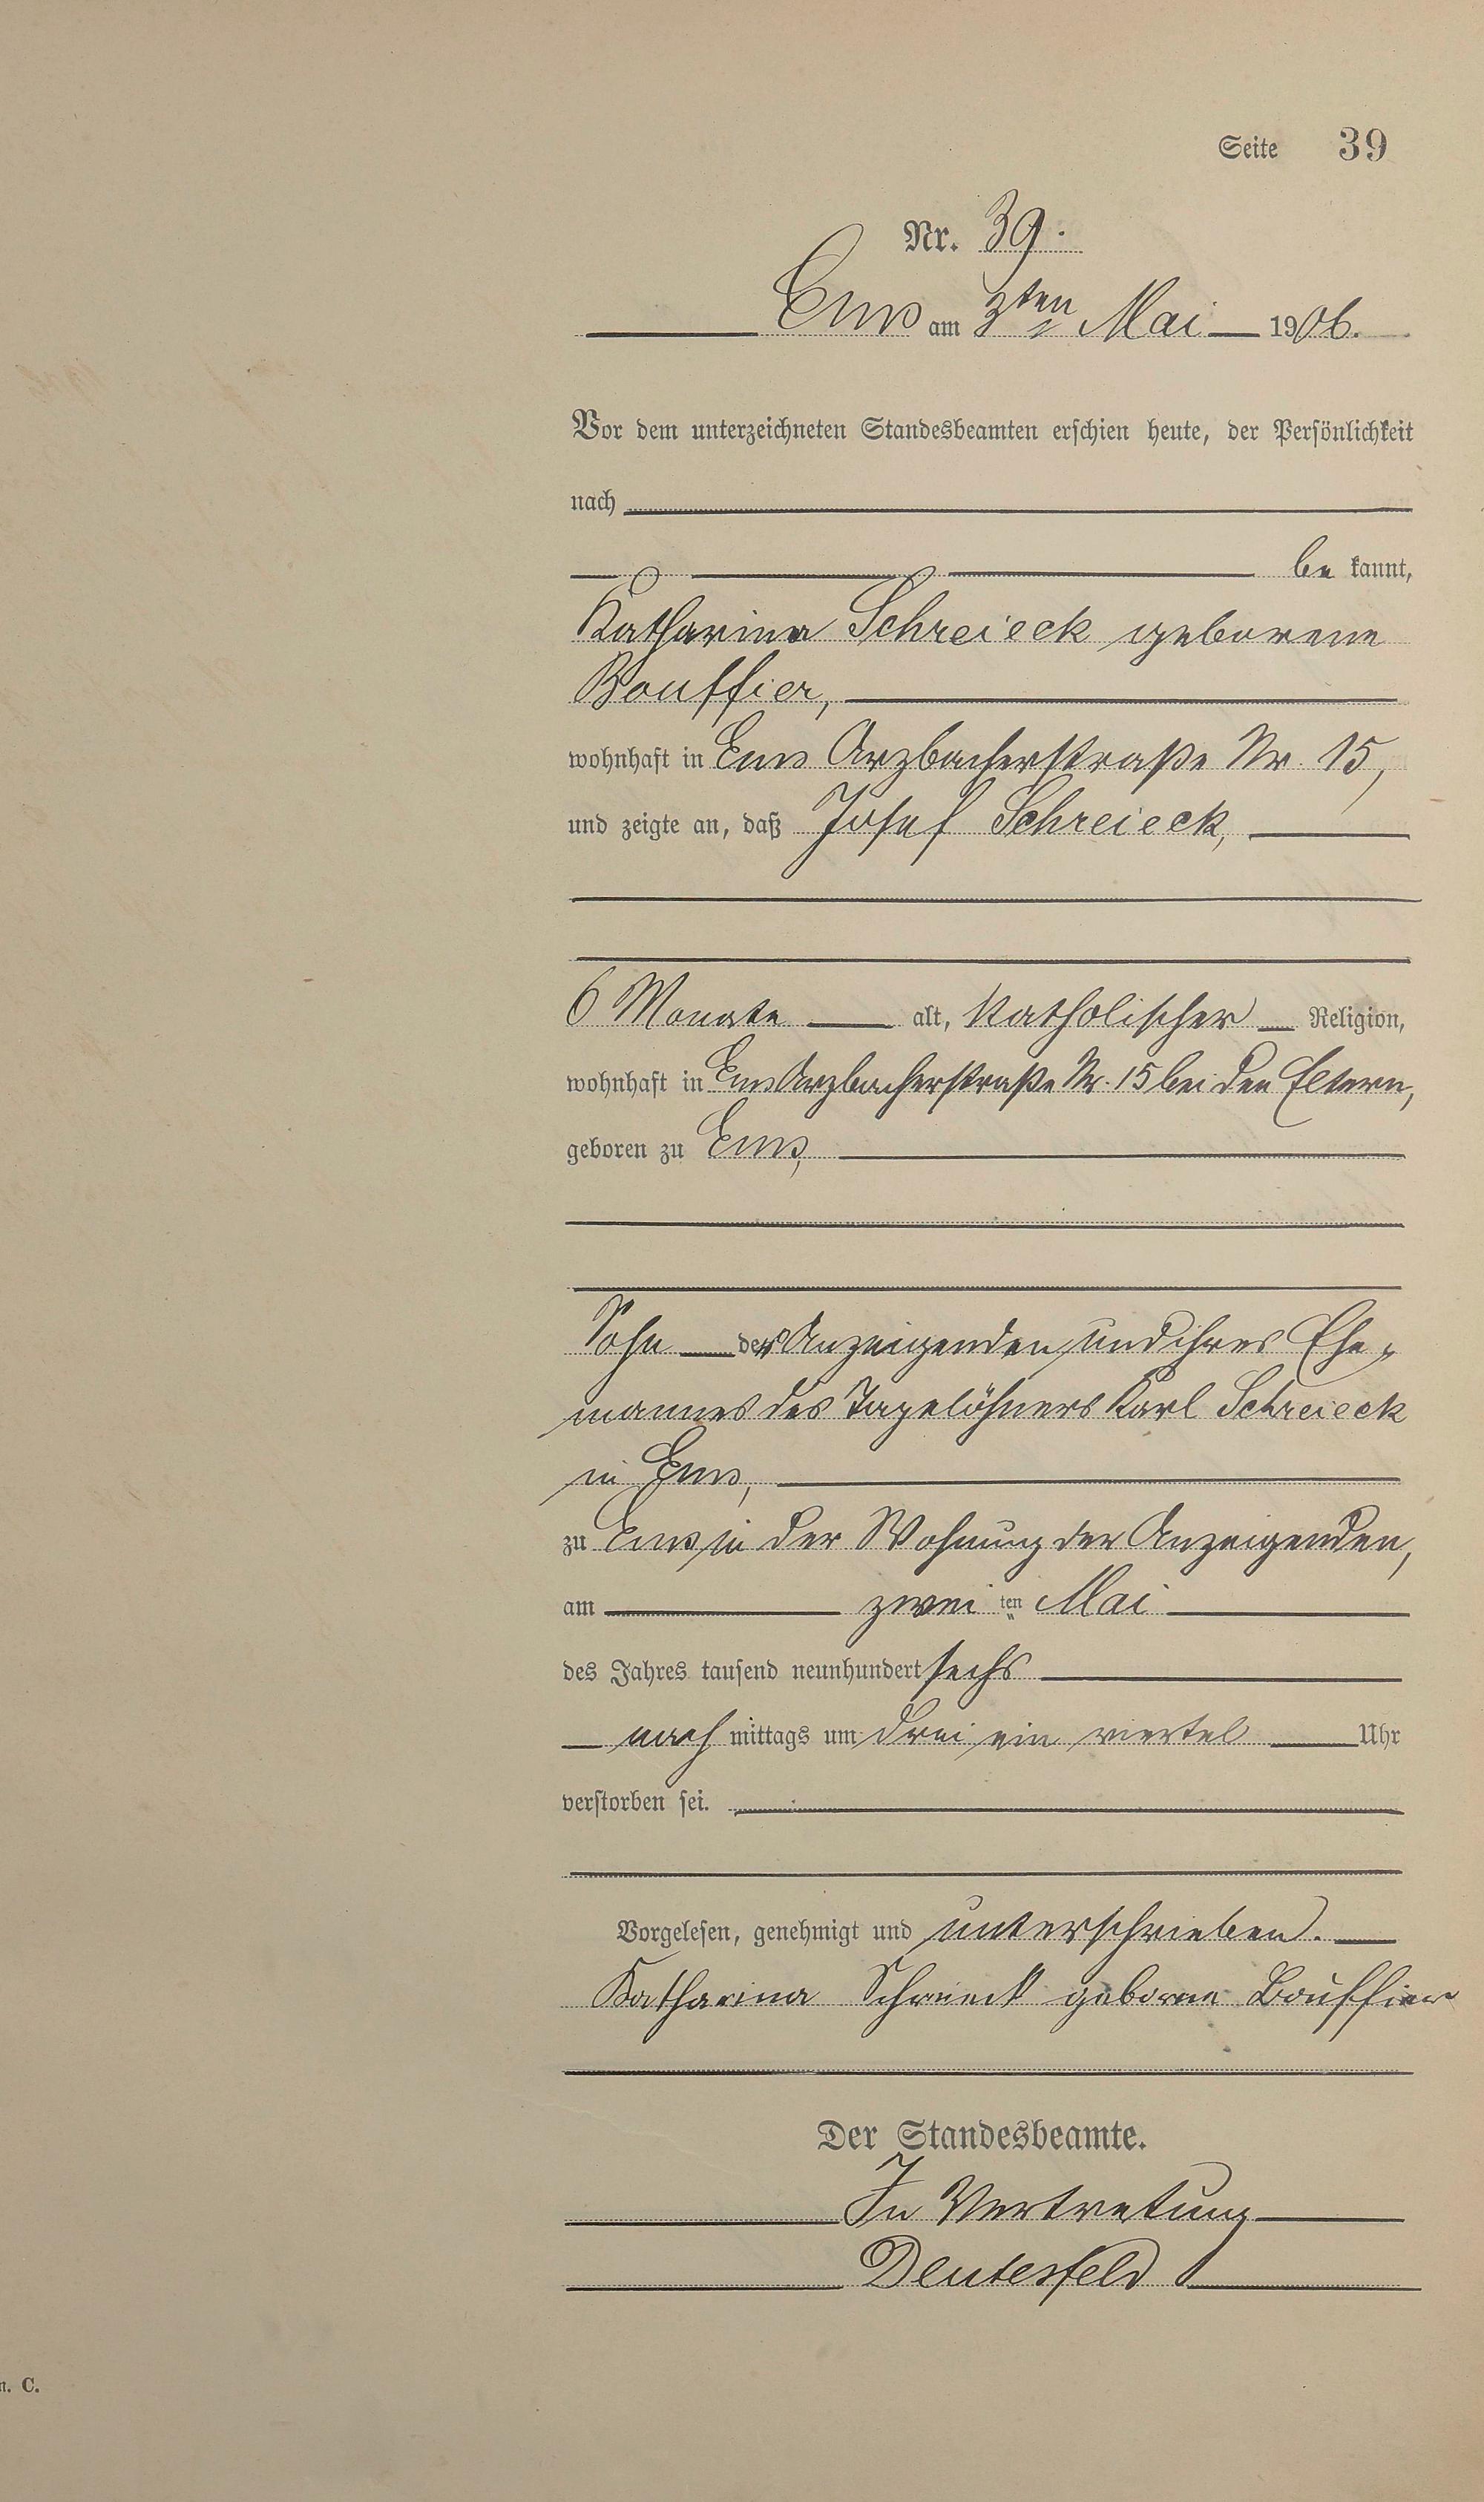 Seite 39
Nr. 39.
Ems am 3ten Mai 1906.
Vor dem unterzeichneten Standesbeamten erschien heute, der Persönlichkeit
nach
be kannt,
Katharina Schreieck geborene
Bouffier,
wohnhaft in Ems Arzbacherstraße Nr. 15,
und zeigte an, daß Josef Schreieck,
6 Monate alt, katholischer Religion,
wohnhaft in Ems Arzbacherstraße Nr. 15 bei den Eltern,
geboren zu Ems,
Sohn der Anzeigenden und ihres Ehe-
mannes des Tagelöhners Karl Schreieck
in Ems,
zu Ems in der Wohnung der Anzeigenden,
am zwei ten Mai
des Jahres tausend neunhundert sechs
nach mittags um drei ein viertel Uhr
verstorben sei.
Vorgelesen, genehmigt und unterschrieben.
Katharina Schreieck geborne Bouffier
Der Standesbeamte.
In Vertretung
Deutesfeld
n. C.